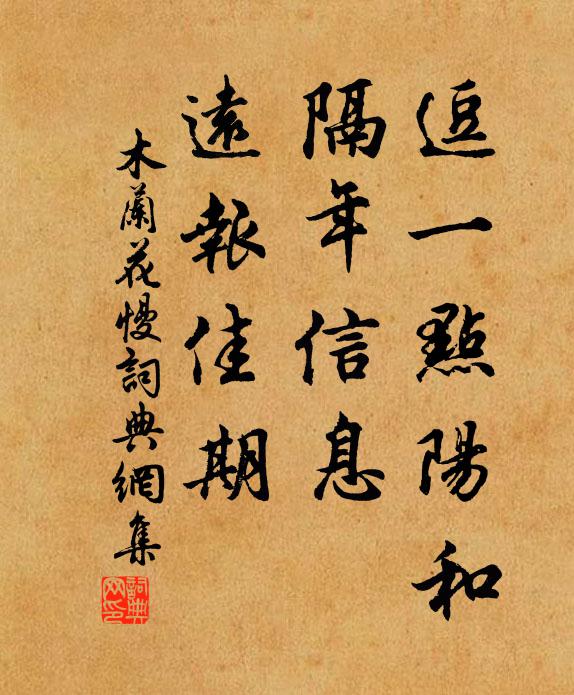 逗一點陽和
隔年信息
遠報佳期
木蘭花慢詞典網集
詞典网印